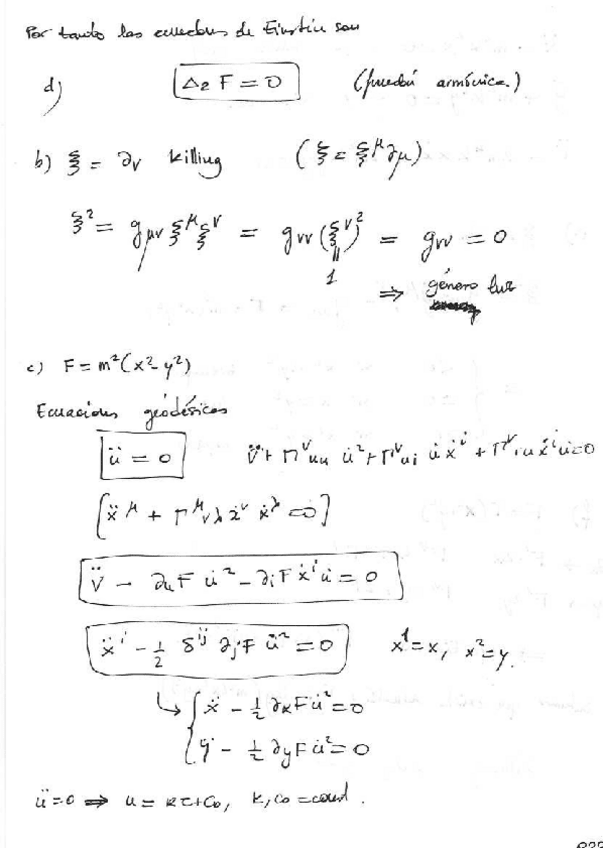 Por tanto las ecuaciones de Einstein son
d) Δ₂ F = 0 (función armónica.)
b) ξ = ∂v Killing (ξ = ξ^μ ∂μ)
ξ² = gμν ξ^μ ξ^ν = gvv (ξ^v)² = gvv = 0
1
⇒ género luz
c) F = m²(x² - y²)
Ecuaciones geodésicas
ü = 0 v̈ + Γ^v uu u̇² + Γ^v ui u̇ ẋ^i + Γ^v iu ẋ^i u̇ = 0
[ẍ^μ + Γ^μ νλ ẋ^ν ẋ^λ = 0]
v̈ - ∂uF u̇² - ∂iF ẋ^i u̇ = 0
ẍ^i - 1/2 δ^ij ∂jF u̇² = 0 x¹ = x, x² = y.
↳ { ẍ - 1/2 ∂xF u̇² = 0
ÿ - 1/2 ∂yF u̇² = 0
ü = 0 ⇒ u = kτ + C₀, k, C₀ = const.